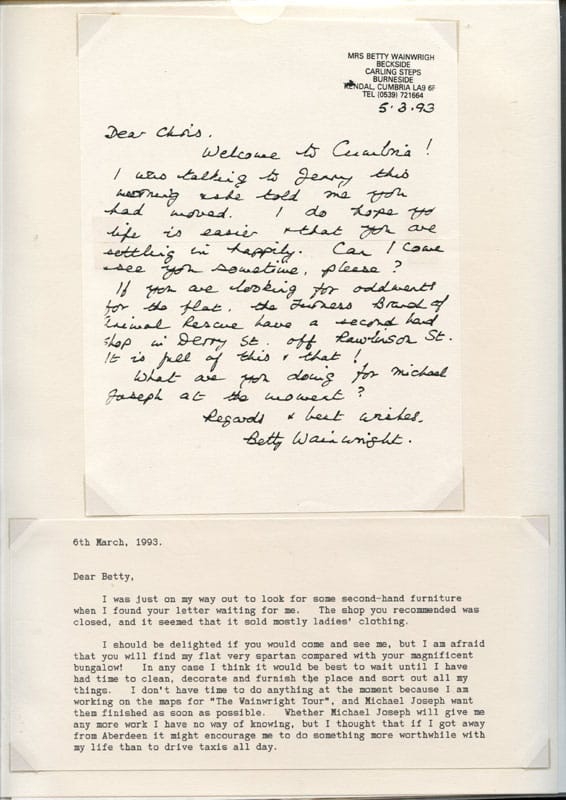 MRS BETTY WAINWRIGH
BECKSIDE
CARLING STEPS
BURNESIDE
KENDAL, CUMBRIA LA9 6F
TEL (0539) 721664
5.3.93
Dear Chris.
Welcome to Cumbria!
I was talking to Jenny this
morning & she told me you
had moved. I do hope yo
life is easier & that you are
settling in happily. Can I come
& see you sometime, please?
If you are looking for oddments
for the flat, the Furness Branch of
Animal Rescue have a second hand
shop in Derry St. off Rawlinson St.
It is full of this & that!
What are you doing for Michael
Joseph at the moment?
Regards & best wishes.
Betty Wainwright.
6th March, 1993.
Dear Betty,
I was just on my way out to look for some second-hand furniture
when I found your letter waiting for me. The shop you recommended was
closed, and it seemed that it sold mostly ladies' clothing.
I should be delighted if you would come and see me, but I am afraid
that you will find my flat very spartan compared with your magnificent
bungalow! In any case I think it would be best to wait until I have
had time to clean, decorate and furnish the place and sort out all my
things. I don't have time to do anything at the moment because I am
working on the maps for "The Wainwright Tour", and Michael Joseph want
them finished as soon as possible. Whether Michael Joseph will give me
any more work I have no way of knowing, but I thought that if I got away
from Aberdeen it might encourage me to do something more worthwhile with
my life than to drive taxis all day.